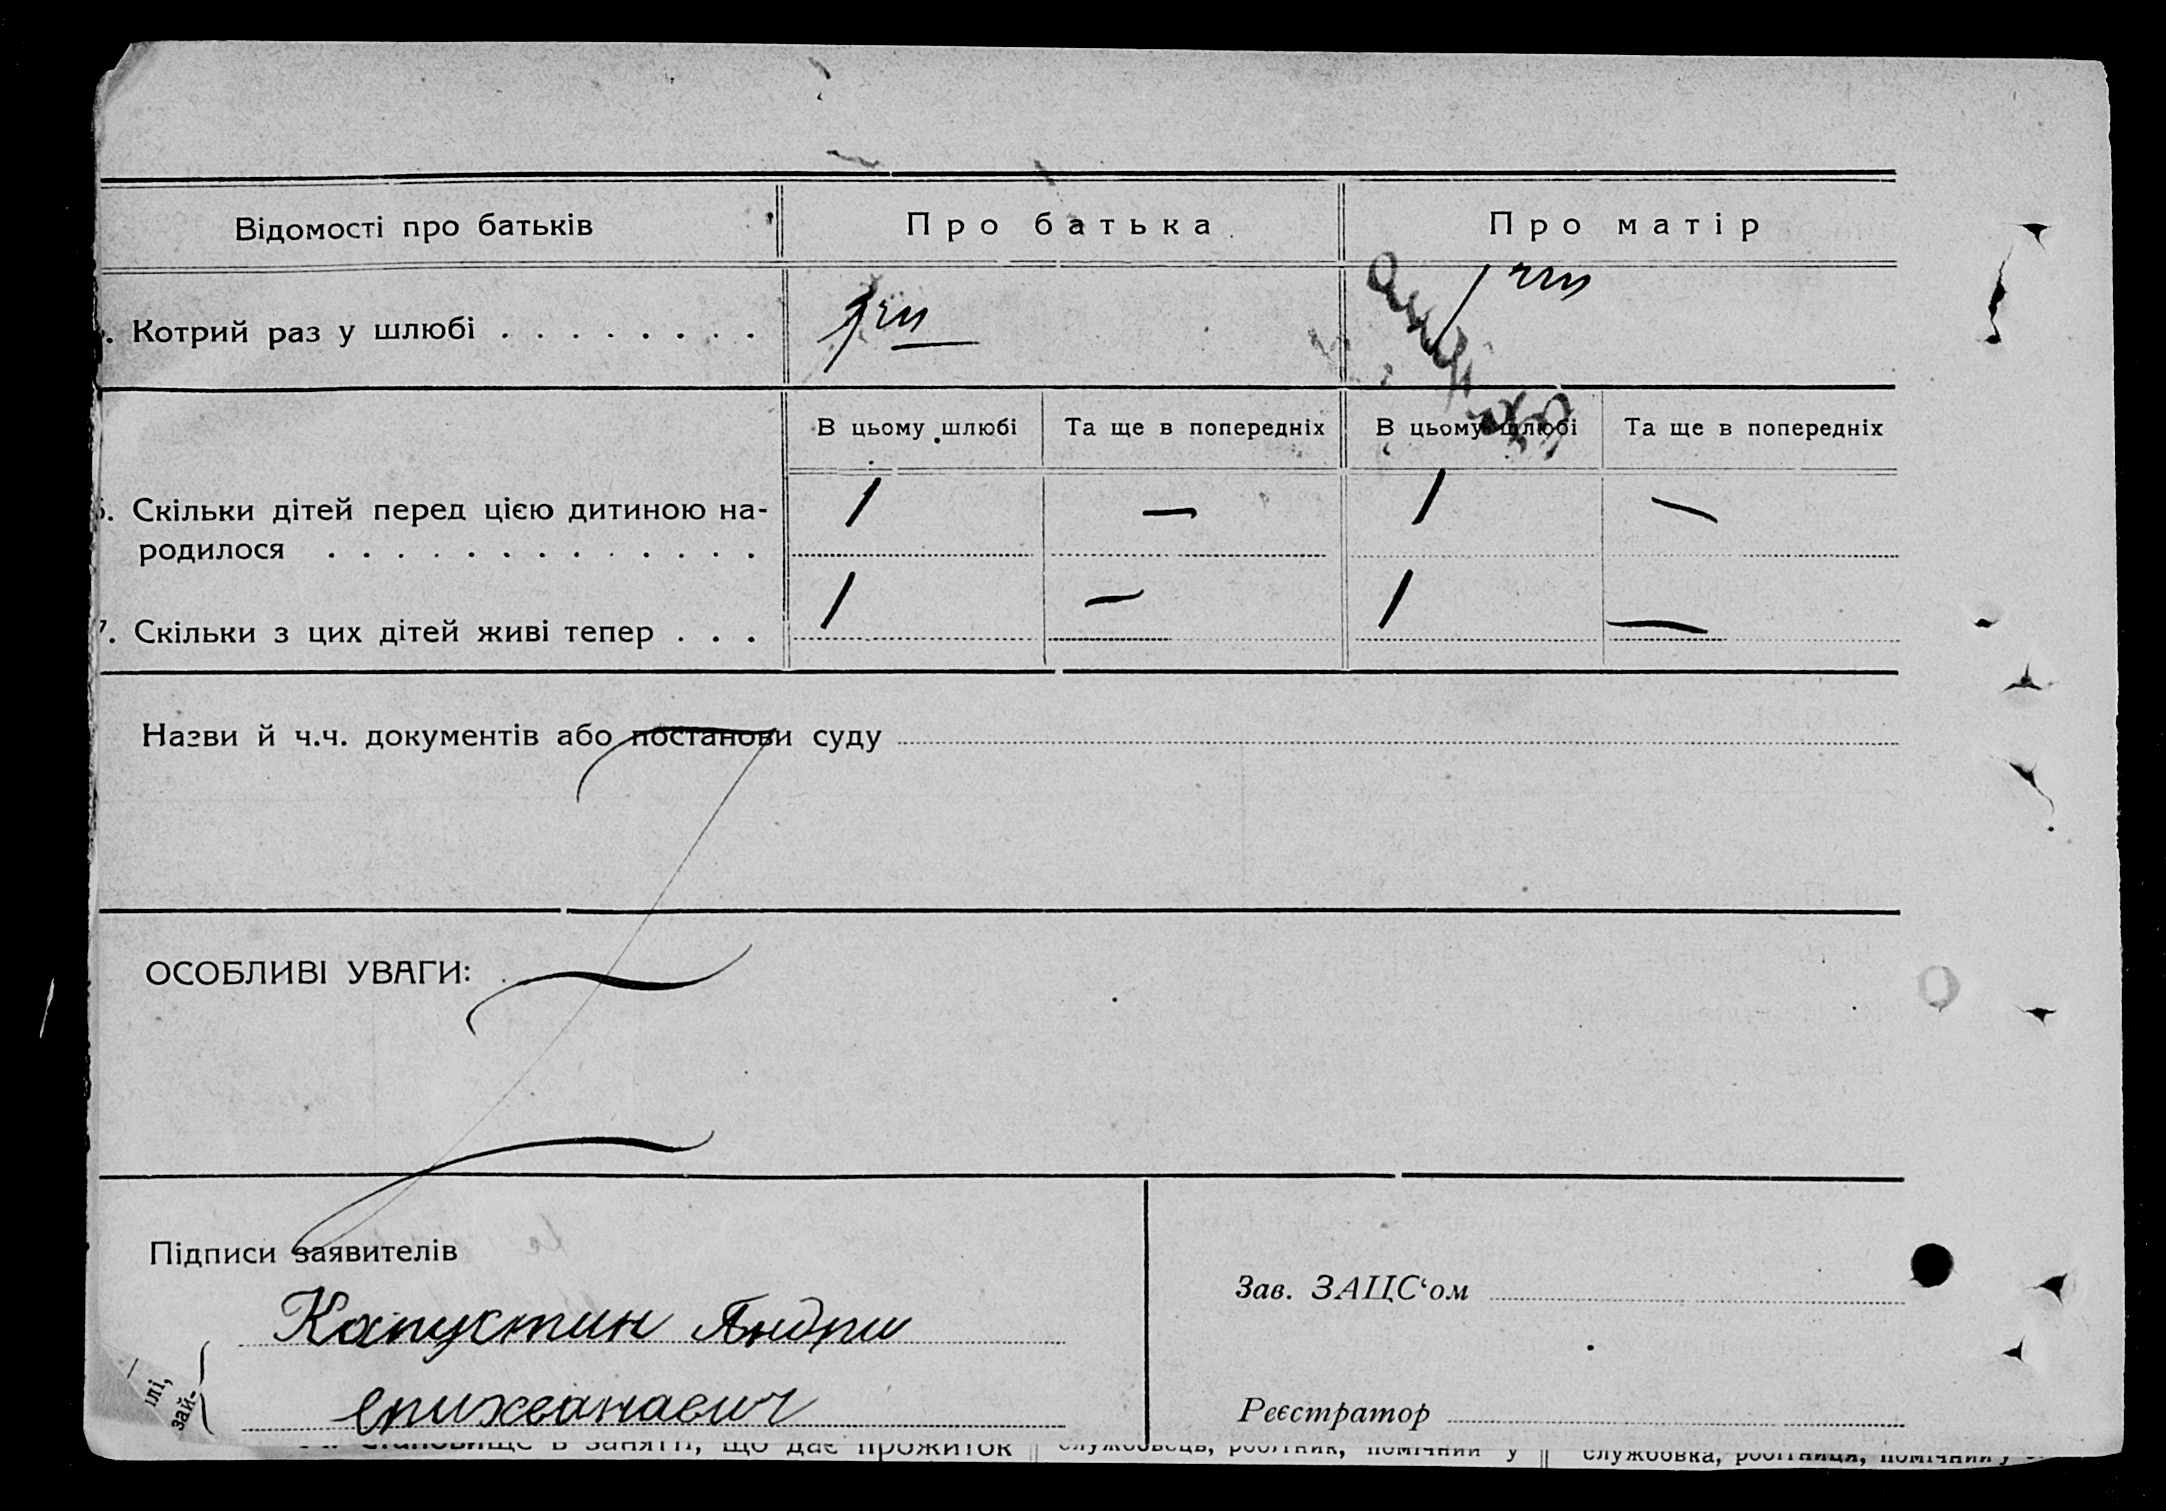 Відомості про батьків
Про батька
Про матір
Котрий раз у шлюбі . . . . . . . .
В цьому шлюбі
Та ще в попередніх
В цьому шлюбі
Та ще в попередніх
6. Скільки дітей перед цією дитиною на-
родилося . . . . . . . . . . . . .
1 — 1 —
7. Скільки з цих дітей живі тепер . . .
1 — 1 —
Назви й ч.ч. документів або постанови суду
ОСОБЛИВІ УВАГИ:
Підписи заявителів
Капустин Андри
епихванаевич
Зав. ЗАЦС‘ом
Реєстратор
ілі,
зай-
Становище в занятті, що дає прожиток
службовець, робітник, помічний у
службовка, робітниця, помічний у